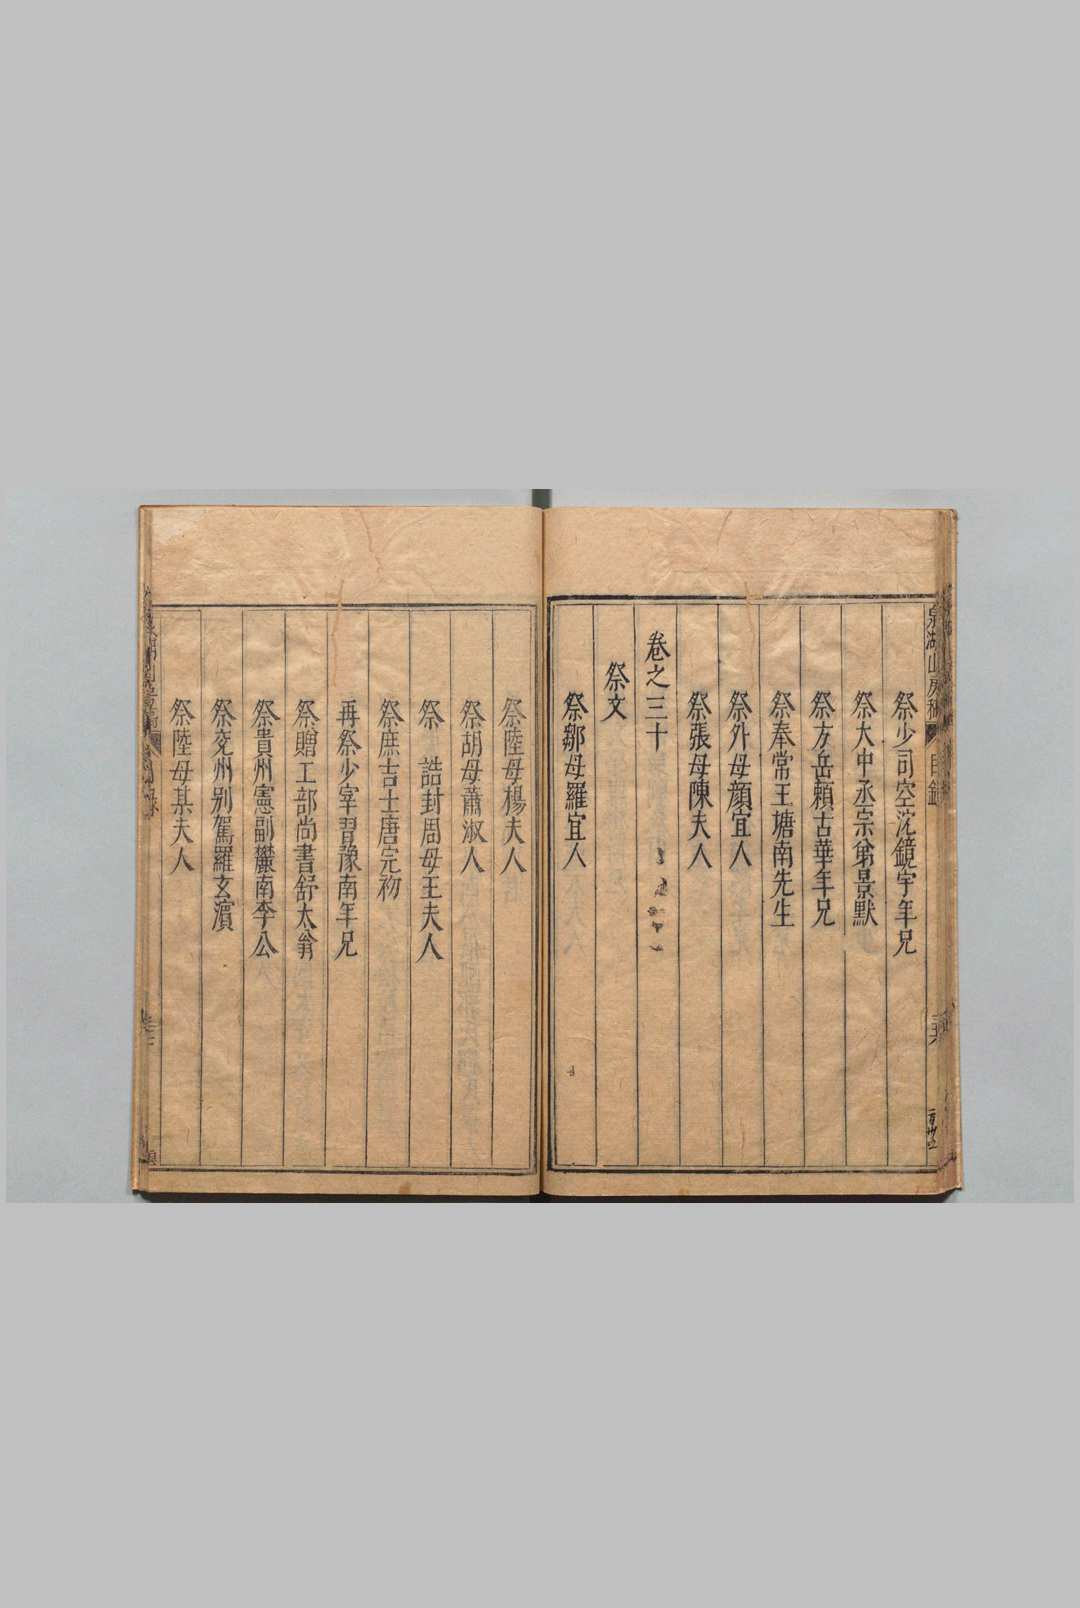 泉湖山房稿
目錄
祭少司空沈鏡宇年兄
祭大中丞宗弟景默
祭方岳賴古華年兄
祭奉常王塘南先生
祭外母顔宜人
祭張母陳夫人
卷之三十
祭文
祭鄒母羅宜人
祭陸母楊夫人
祭胡母蕭淑人
祭 誥封周母王夫人
祭庶吉士唐完初
再祭少宰習豫南年兄
祭贈工部尚書舒太翁
祭貴州憲副欝南李公
祭兖州别駕羅玄濵
祭陸母某夫人